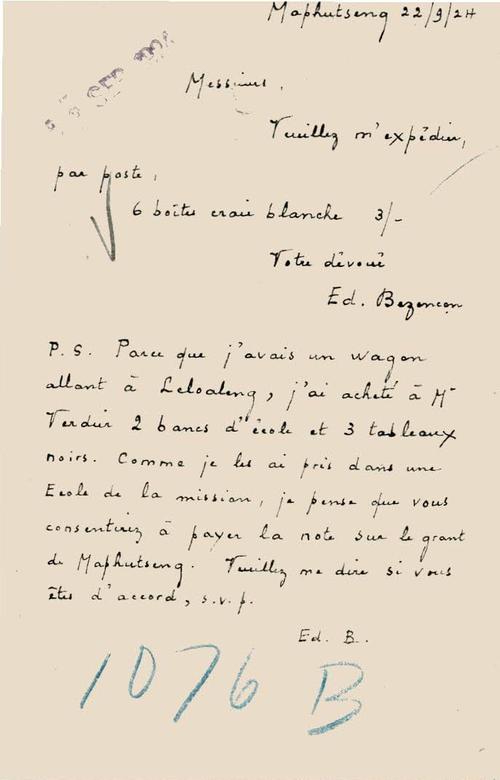 Maphutseng 22/9/24
SEP 1924
Messieurs,
Veuillez m'expédier,
par poste,
6 boîtes craie blanche 3/-
Votre dévoué
Ed. Bezencon
P.S. Parce que j'avais un wagon
allant à Leloaleng, j'ai acheté à Mr
Verdier 2 bancs d'école et 3 tableaux
noirs. Comme je les ai pris dans une
Ecole de la mission, je pense que vous
consentirez à payer la note sur le grant
de Maphutseng. Veuillez me dire si vous
êtes d'accord, s.v.p.
Ed. B.
1076 B